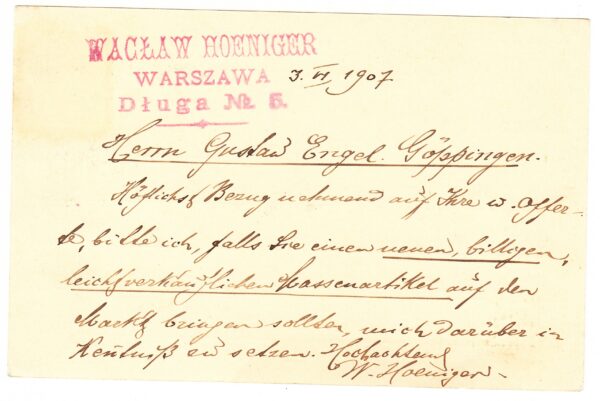 WACŁAW HOENIGER
WARSZAWA
3. VI 1907
Długa № 5.
Herrn Gustav Engel. Göppingen.
Höflichst Bezug nehmend auf Ihre w. Offer-
te, bitte ich, falls Sie einen neuen, billigen,
leichtverkäuflichen Massenartikel auf den
Markt bringen sollten, mich darüber in
Kentniß zu setzen. Hochachtend
W. Hoeniger